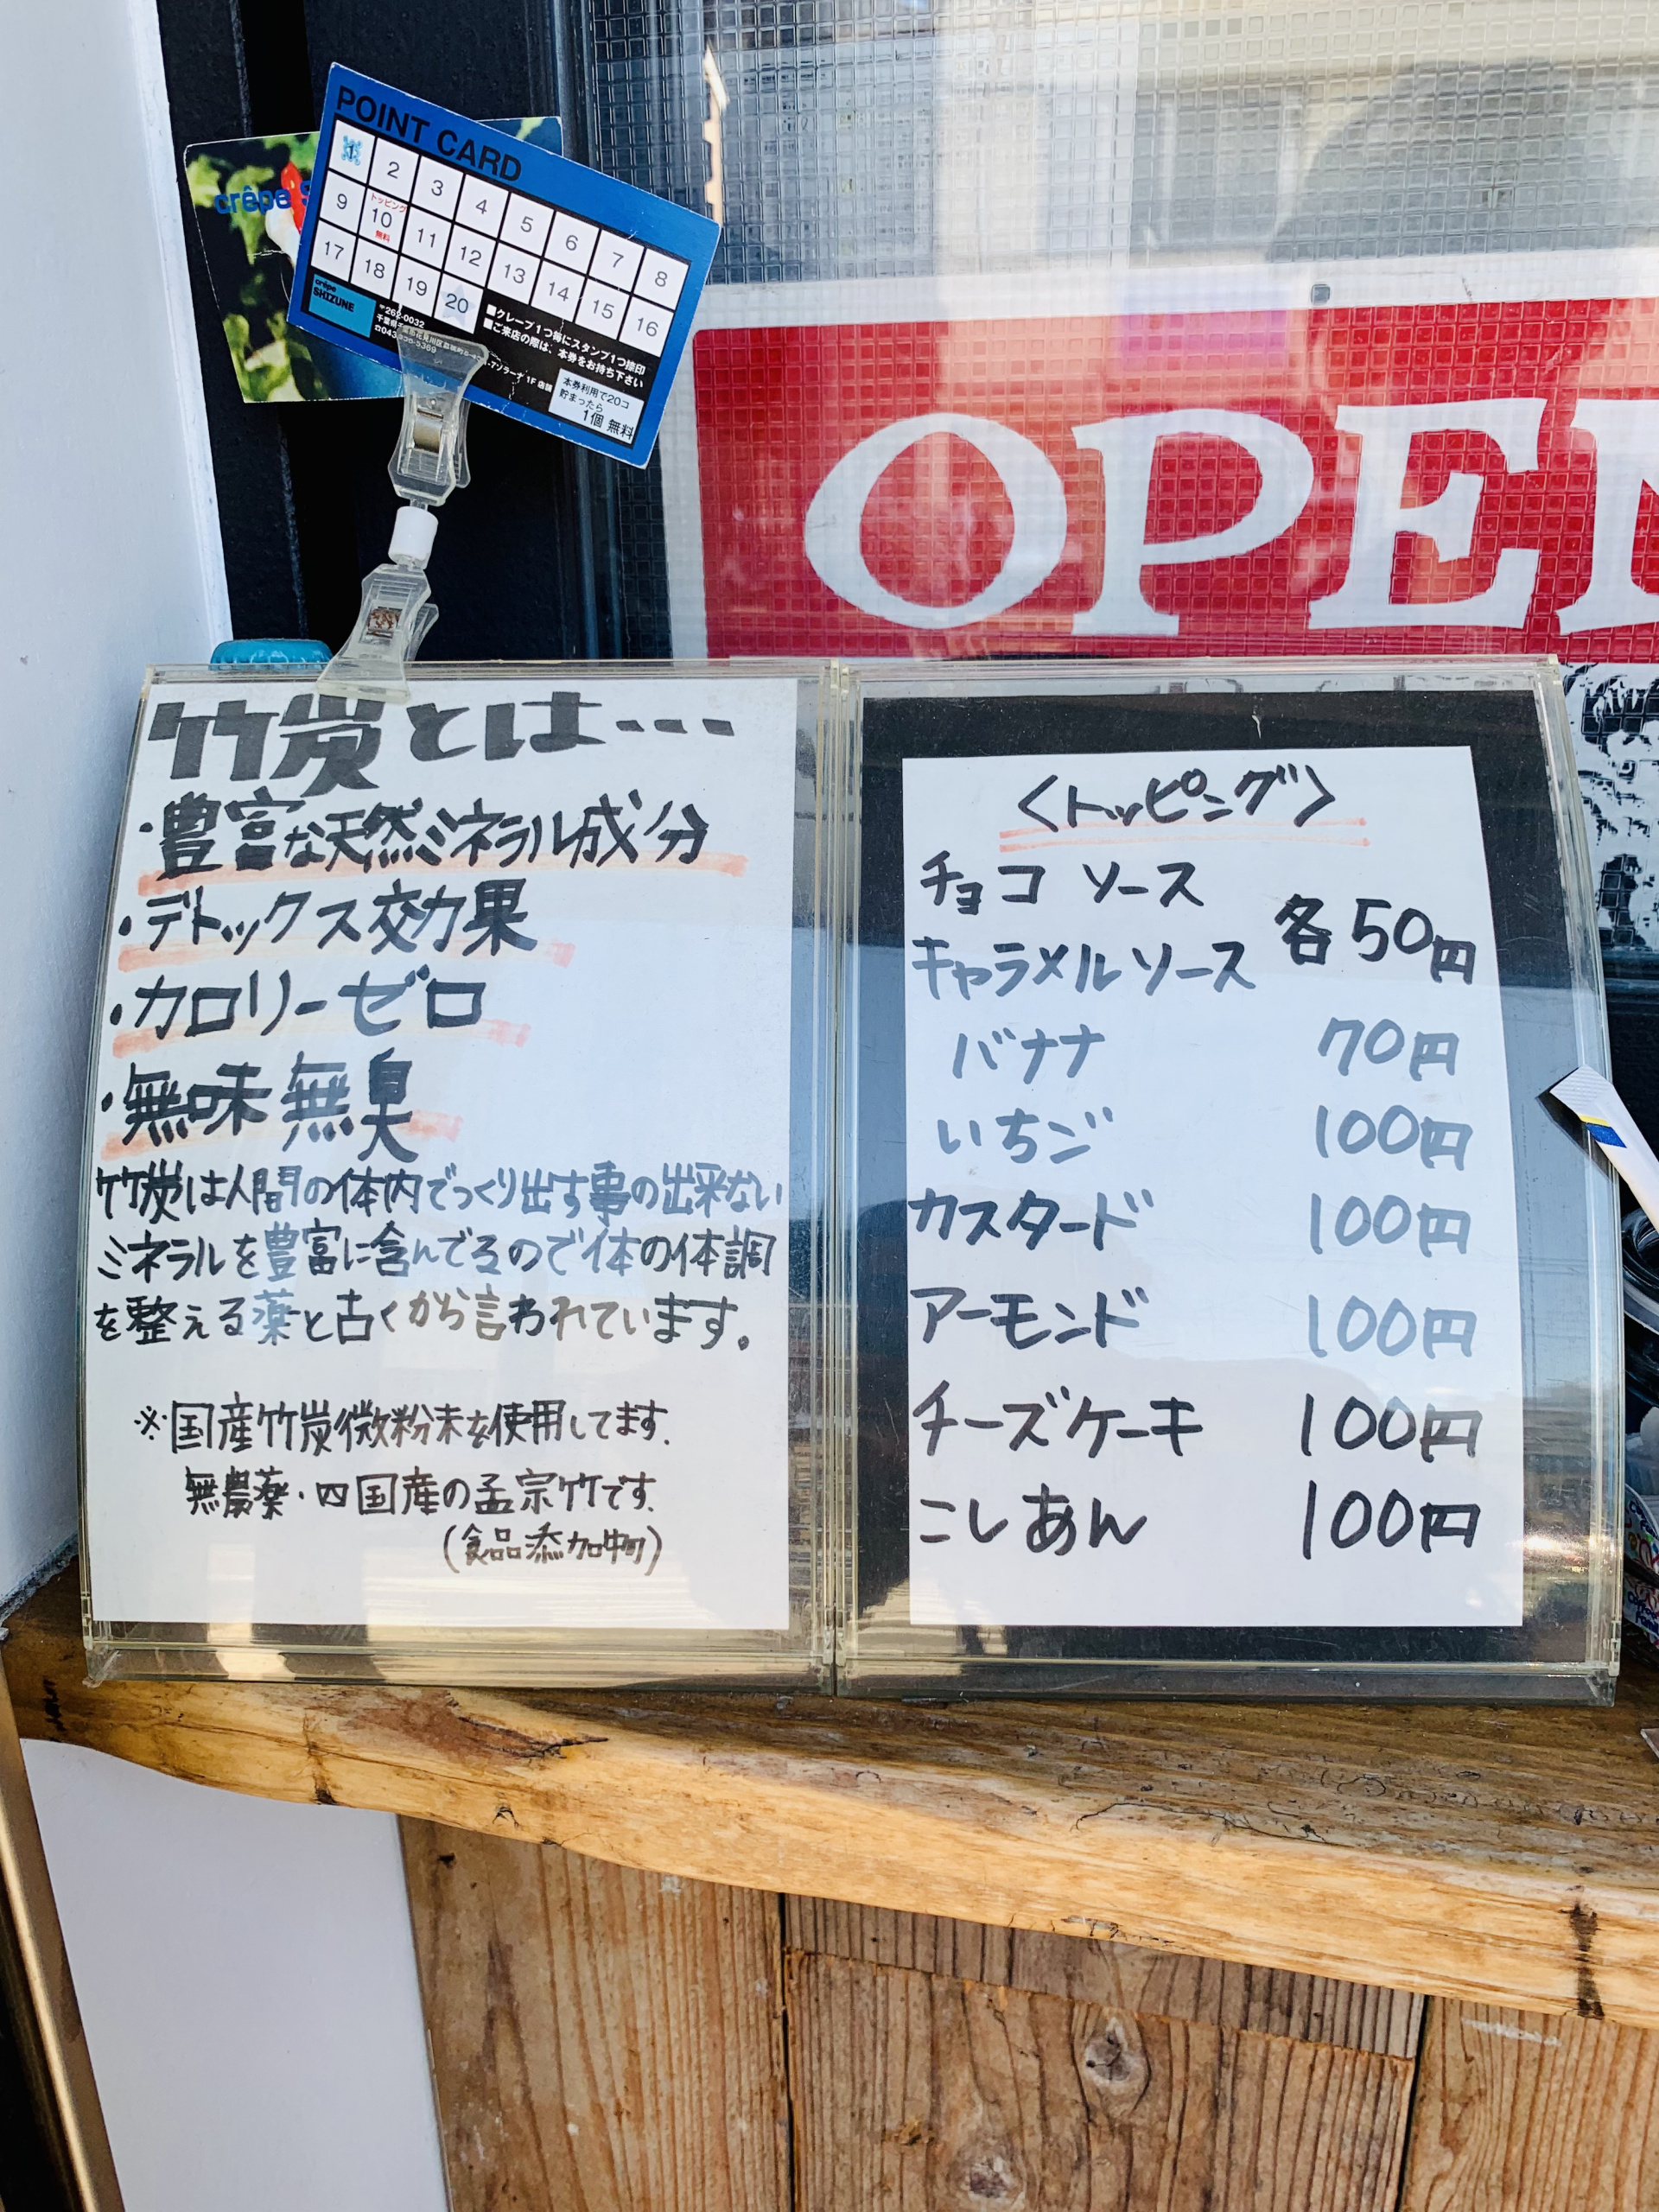 POINT CARD
1 2 3 4 5 6 7 8
9 トッピング 10 無料 11 12 13 14 15 16
17 18 19 20
crêpe
SHIZUNE
〒262-0032
■クレープ1つ毎にスタンプ1つ捺印
■ご来店の際は、本券をお持ち下さい
本券利用で20コ
貯まったら
1個 無料
crêpe
OPEN
竹炭とは…
・豊富な天然ミネラル成分
・デトックス効果
・カロリーゼロ
・無味無臭
竹炭は人間の体内でつくり出す事の出来ない
ミネラルを豊富に含んでるので体の体調
を整える薬と古くから言われています。
※国産竹炭微粉末を使用してます.
無農薬・四国産の孟宗竹です.
(食品添加物)
〈トッピング〉
チョコソース
キャラメルソース 各50円
バナナ 70円
いちご 100円
カスタード 100円
アーモンド 100円
チーズケーキ 100円
こしあん 100円